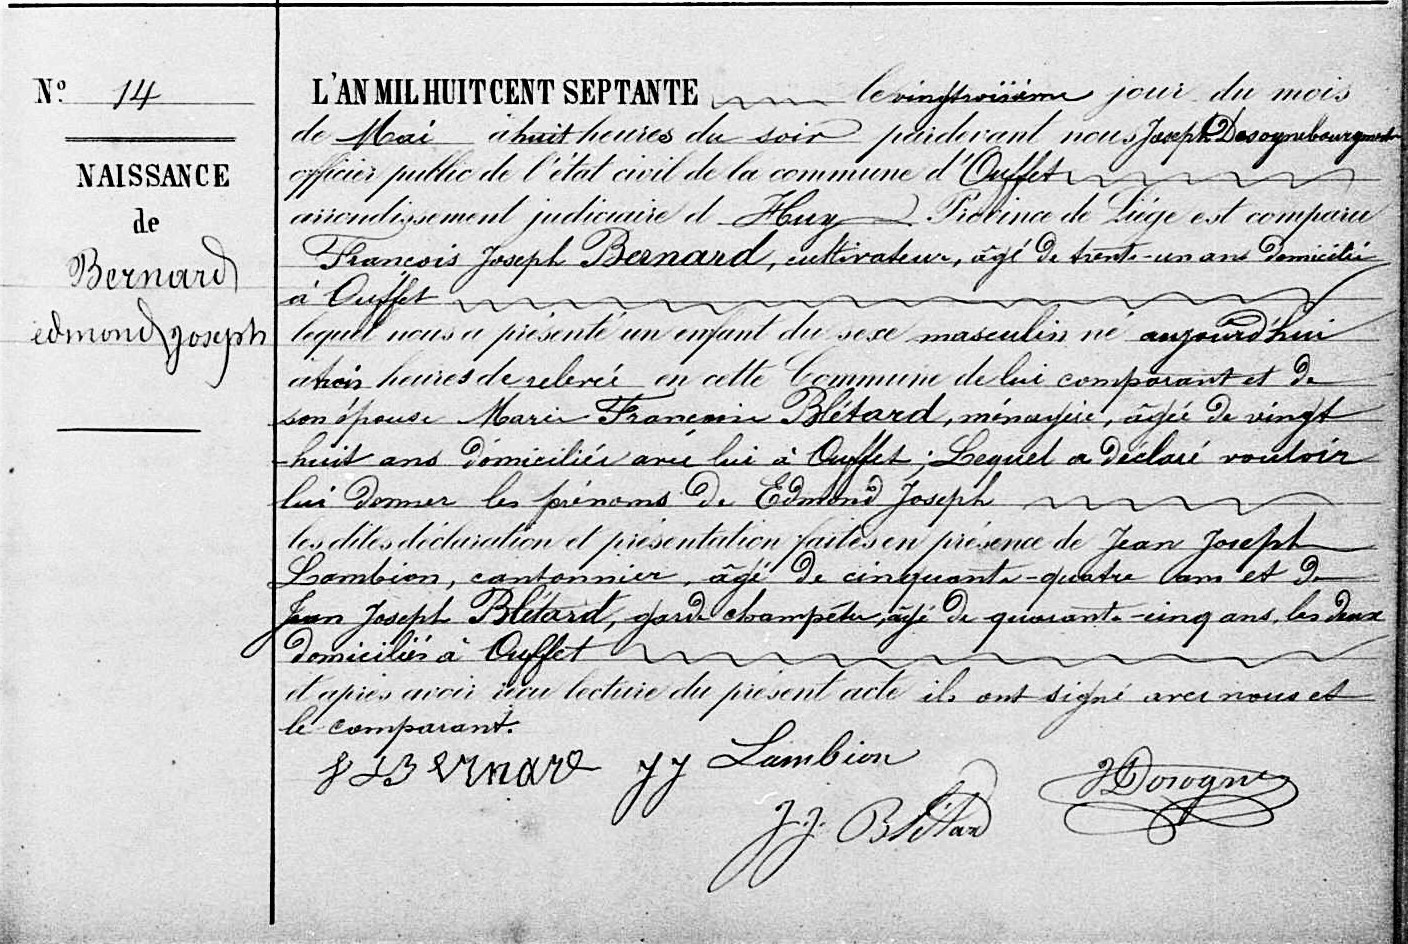 N.º 14
NAISSANCE
de
Bernard
edmond joseph
L'AN MIL HUIT CENT SEPTANTE le vingtroisième jour du mois
de Mai à huit heures du soir pardevant nous Joseph Dosogne bourgmestre
officier public de l'état civil de la commune d'Ouffet
arrondissement judiciaire d Huy Province de Liége est comparu
François Joseph Bernard, cultivateur, âgé de trente-un ans domicilié
à Ouffet
lequel nous a présenté un enfant du sexe masculin né aujourd'hui
à trois heures de relevée en cette Commune de lui comparant et de
son épouse Marie Françoise Blétard, ménagère, âgée de vingt
-huit ans domiciliée avec lui à Ouffet; Lequel a déclaré vouloir
lui donner les prénoms de Edmond Joseph
les dites déclaration et présentation faites en présence de Jean Joseph
Lambion, cantonnier, âgé de cinquante-quatre ans et de
Jean Joseph Blétard, garde champêtre, âgé de quarante-cinq ans, les deux
domiciliés à Ouffet
et après avoir reçu lecture du présent acte ils ont signé avec nous et
le comparant.
f j Bernard J J Lambion
JDosogne
J. J. Blétard